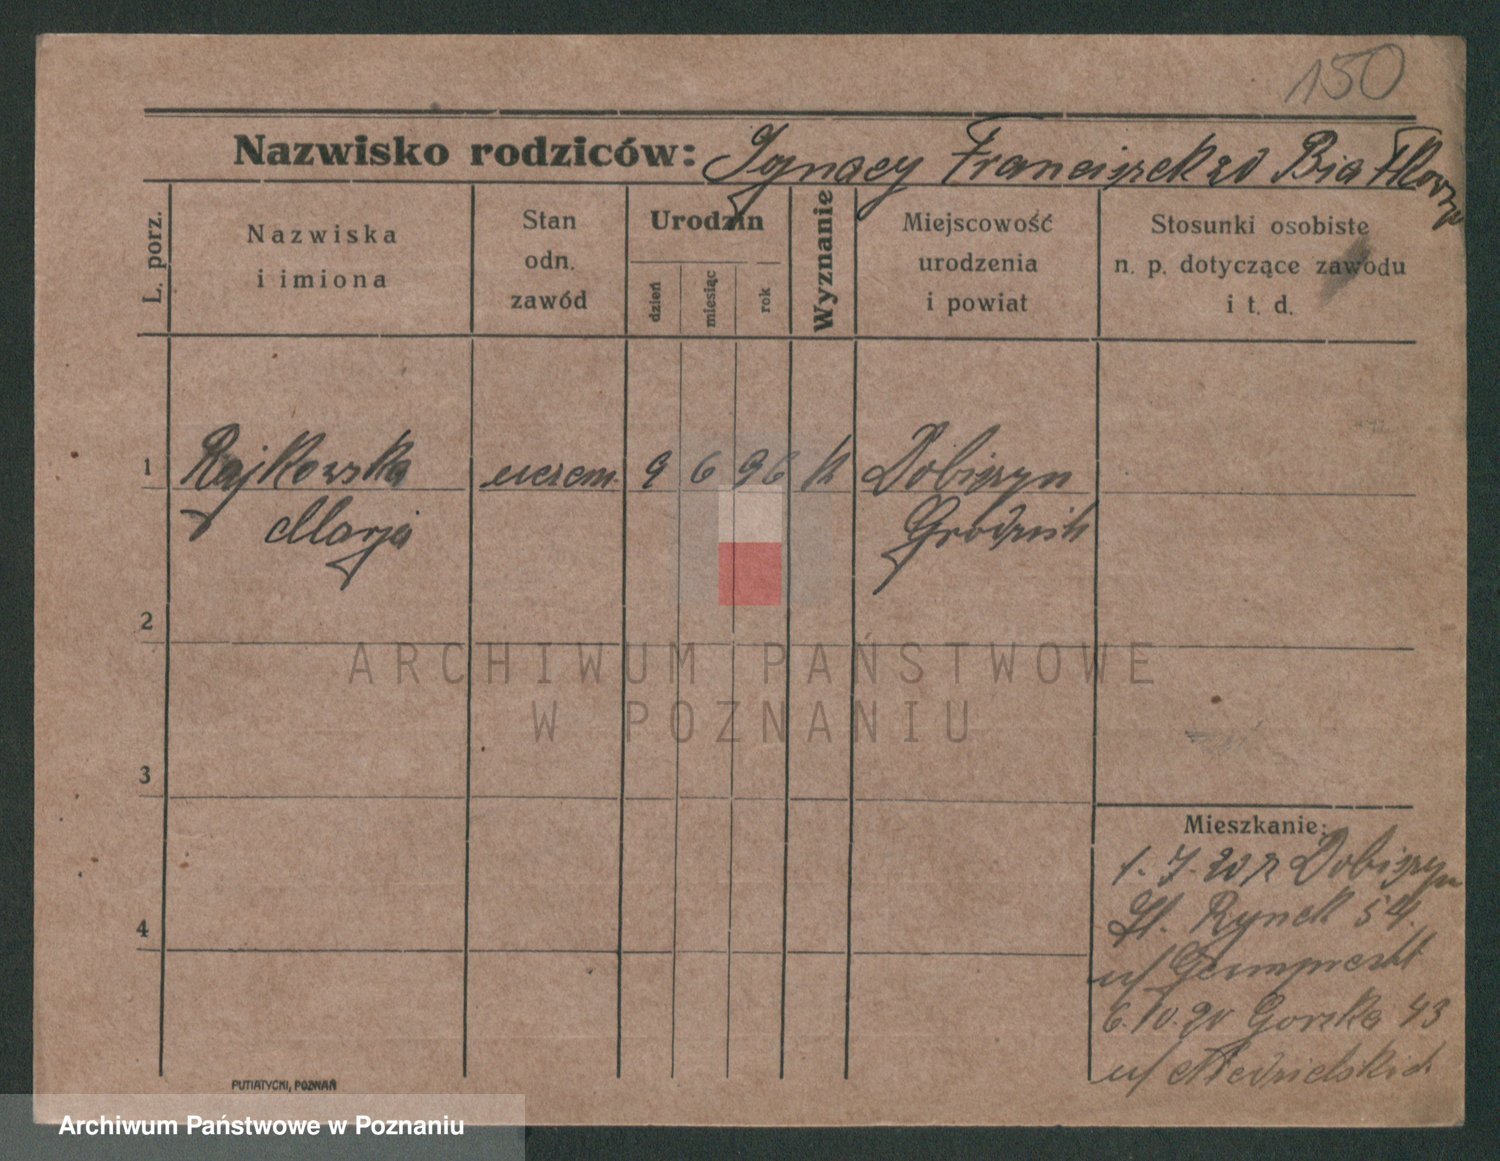 150
Nazwisko rodziców: Ignacy Franciszka zd Białkorzy
L. porz.
Nazwiska
i imiona
Stan
odn.
zawód
Urodzin
dzień
miesiąc
rok
Wyznanie
Miejscowość
urodzenia
i powiat
Stosunki osobiste
n. p. dotyczące zawodu
i t. d.
1 Rajkowska uczen. 9 6 96 k Dobieżyn
Marja Grodzisk
2
3
4
Mieszkanie:
1. 7. 20 z Dobieżyn
St. Rynek 54.
u/
6. 10. 20 Gorska 43
u/ Niedzielskich
PUTIATYCKI, POZNAŃ
ARCHIWUM PAŃSTWOWE
W POZNANIU
Archiwum Państwowe w Poznaniu